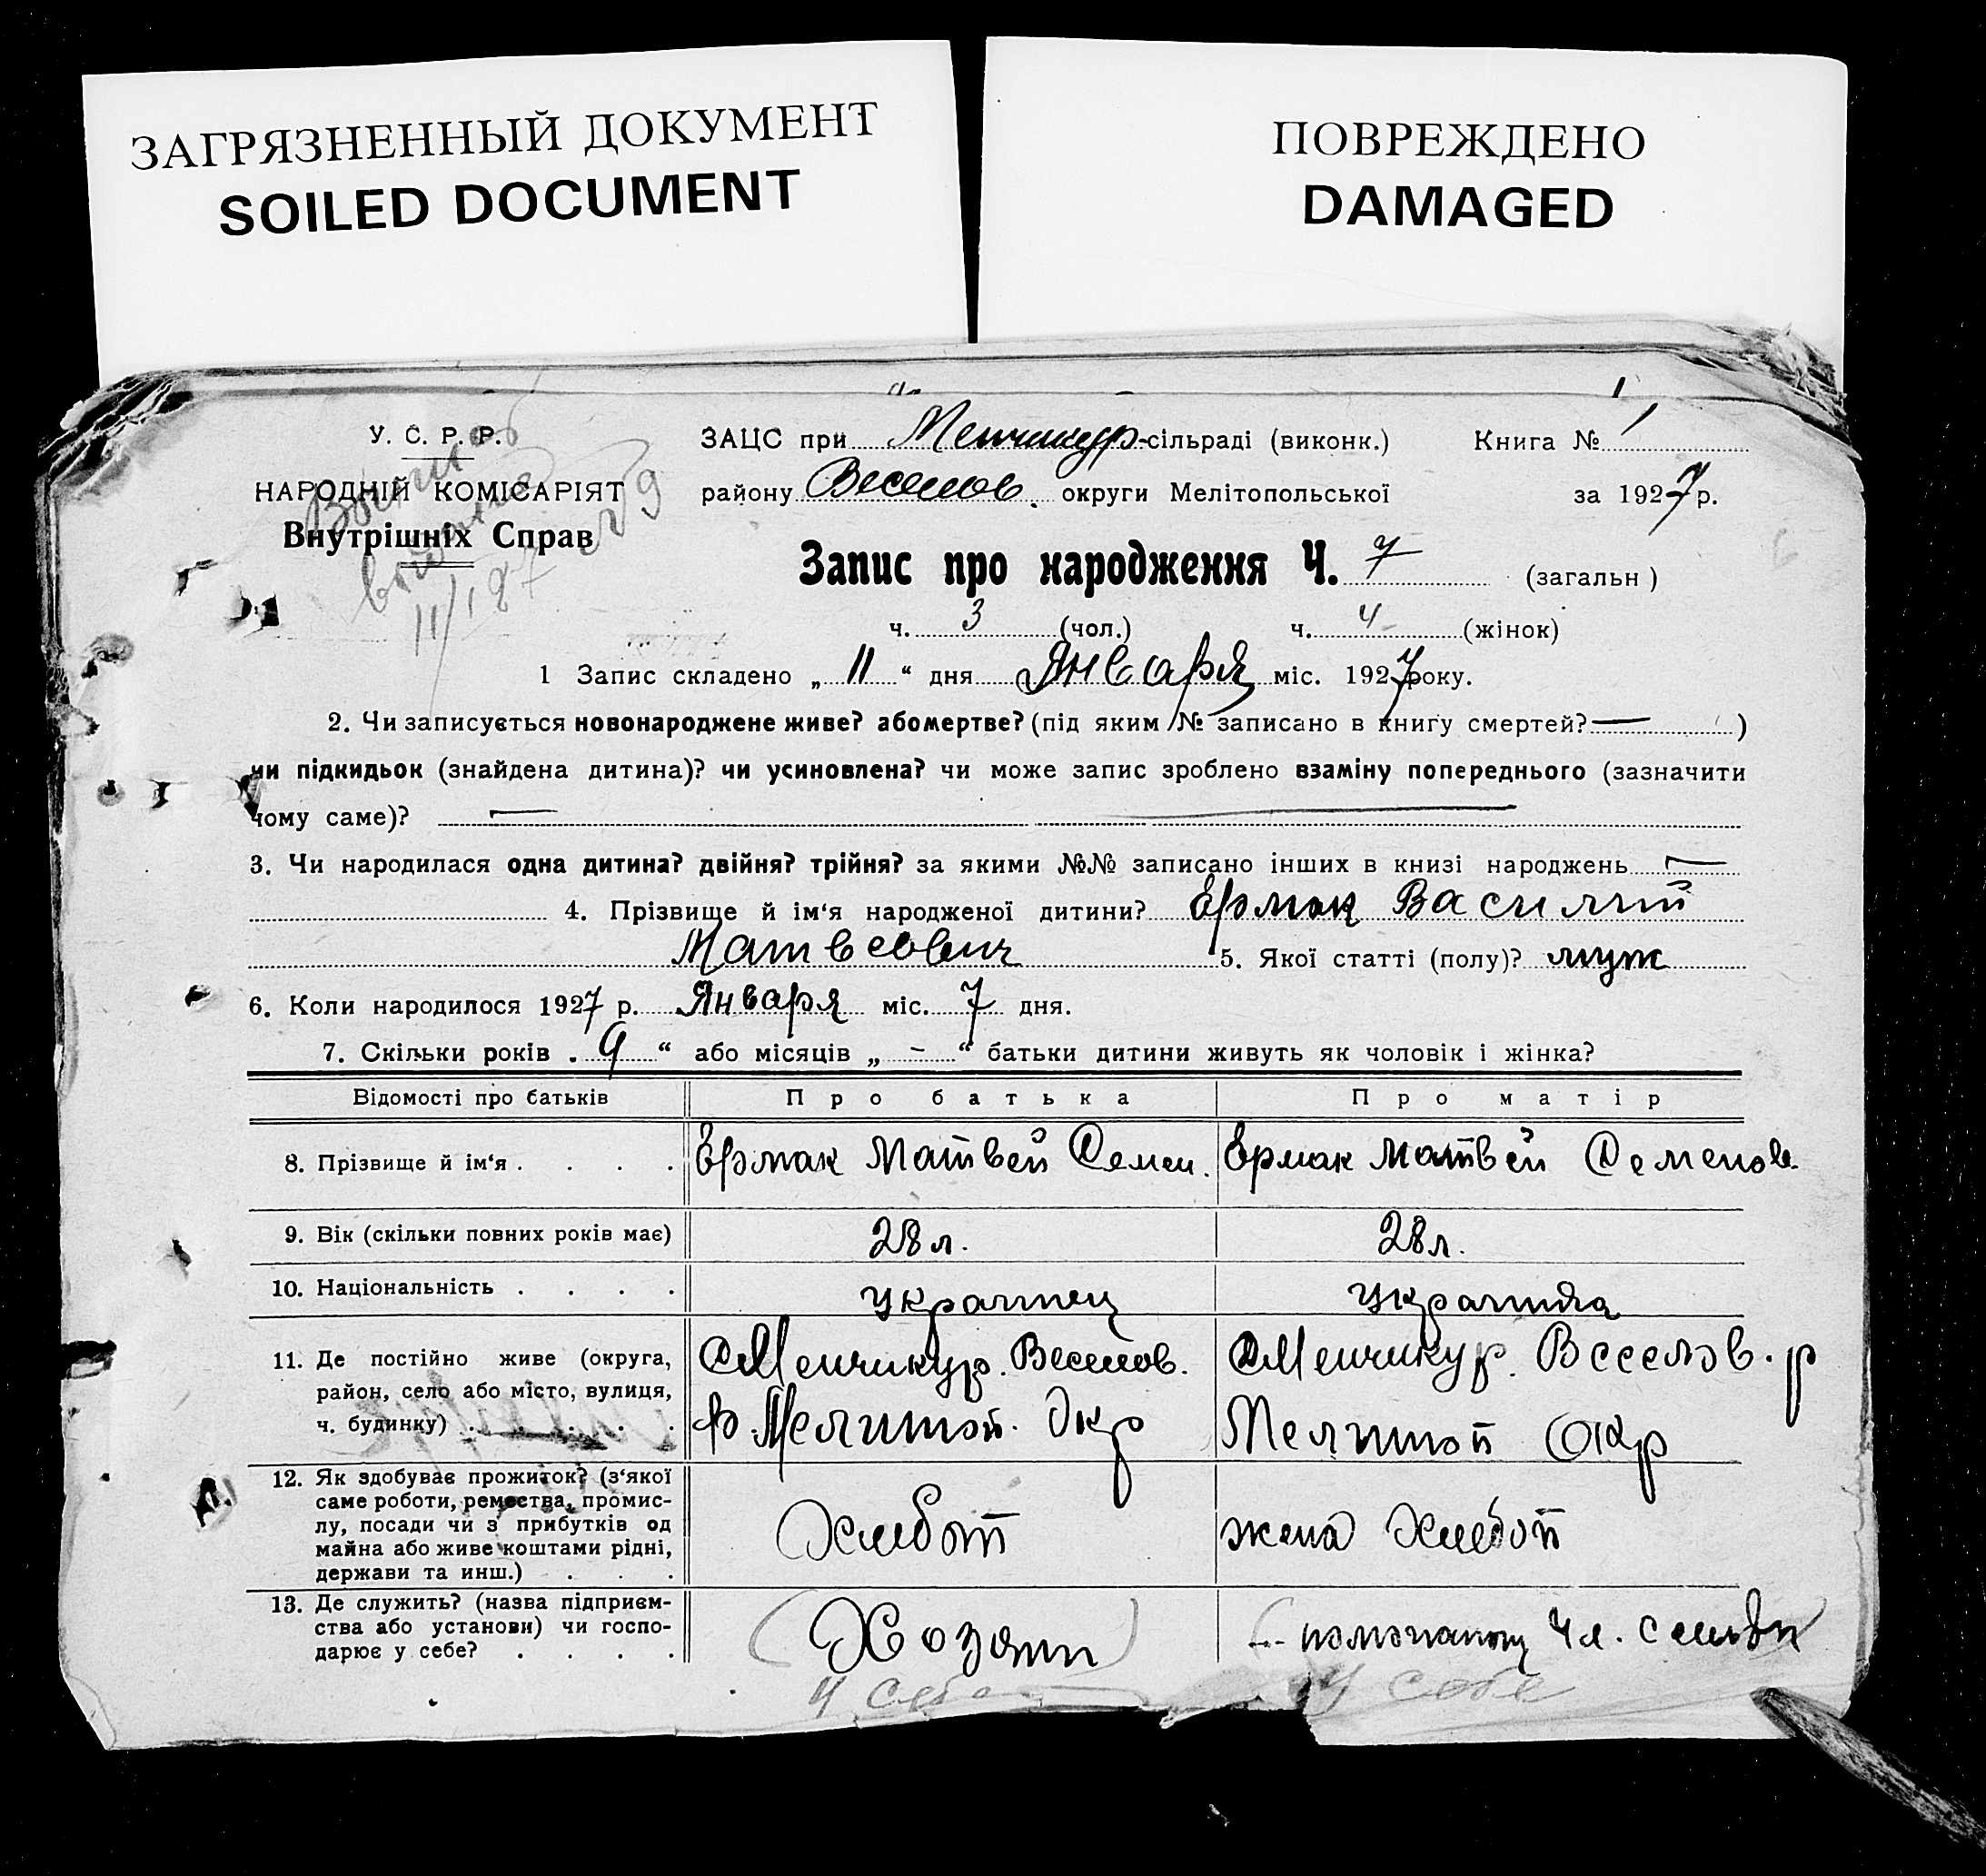 ЗАГРЯЗНЕННЫЙ ДОКУМЕНТ
SOILED DOCUMENT
ПОВРЕЖДЕНО
DAMAGED
У. С. Р. Р.
НАРОДНІЙ КОМІСАРІЯТ
Внутрішніх Справ
ЗАЦС при Менчикур-сільраді (виконк.) Книга № 1
району Веселов. округи Мелітопольської за 1927 р.
Запис про народження Ч. 7 (загальн)
ч. 3 (чол.) ч. 4 (жінок)
1 Запис складено „ 11 “ дня Января міс. 1927 року.
2. Чи записується новонароджене живе? або мертве? (під яким № записано в книгу смертей? — )
чи підкидьок (знайдена дитина)? чи усиновлена? чи може запис зроблено взаміну попереднього (зазначити
чому саме)? — —
3. Чи народилася одна дитина? двійня? трійня? за якими №№ записано інших в книзі народжень —
4. Прізвище й ім‘я народженої дитини? Ермак Василий
Матвеевич 5. Якої статті (полу)? муж
6. Коли народилося 1927 р. Января міс. 7 дня.
7. Скільки років „ 9 “ або місяців „ - “ батьки дитини живуть як чоловік і жінка?
Відомості про батьків Про батька Про матір
8. Прізвище й ім‘я . . . . Ермак Матвей Семен. Ермак Матвей Семенов.
9. Вік (скільки повних років має) 28 л. 28 л.
10. Національність . . . . украинец украинка
11. Де постійно живе (округа, район, село або місто, вулиця, ч. будинку) . . . . .
с Менчикур. Веселов.
р. Мелитоп. Окр
с Менчикур. Веселов. р
Мелитоп Окр
12. Як здобуває прожиток? (з‘якої саме роботи, ремества, промислу, посади чи з прибутків од майна або живе коштами рідні, держави та инш.) . . .
Хлебоп
жена Хлебоп
13. Де служить? (назва підприємства або установи) чи господарює у себе? . . . .
(Хозяин)
(помогающ чл. семьи
у себе